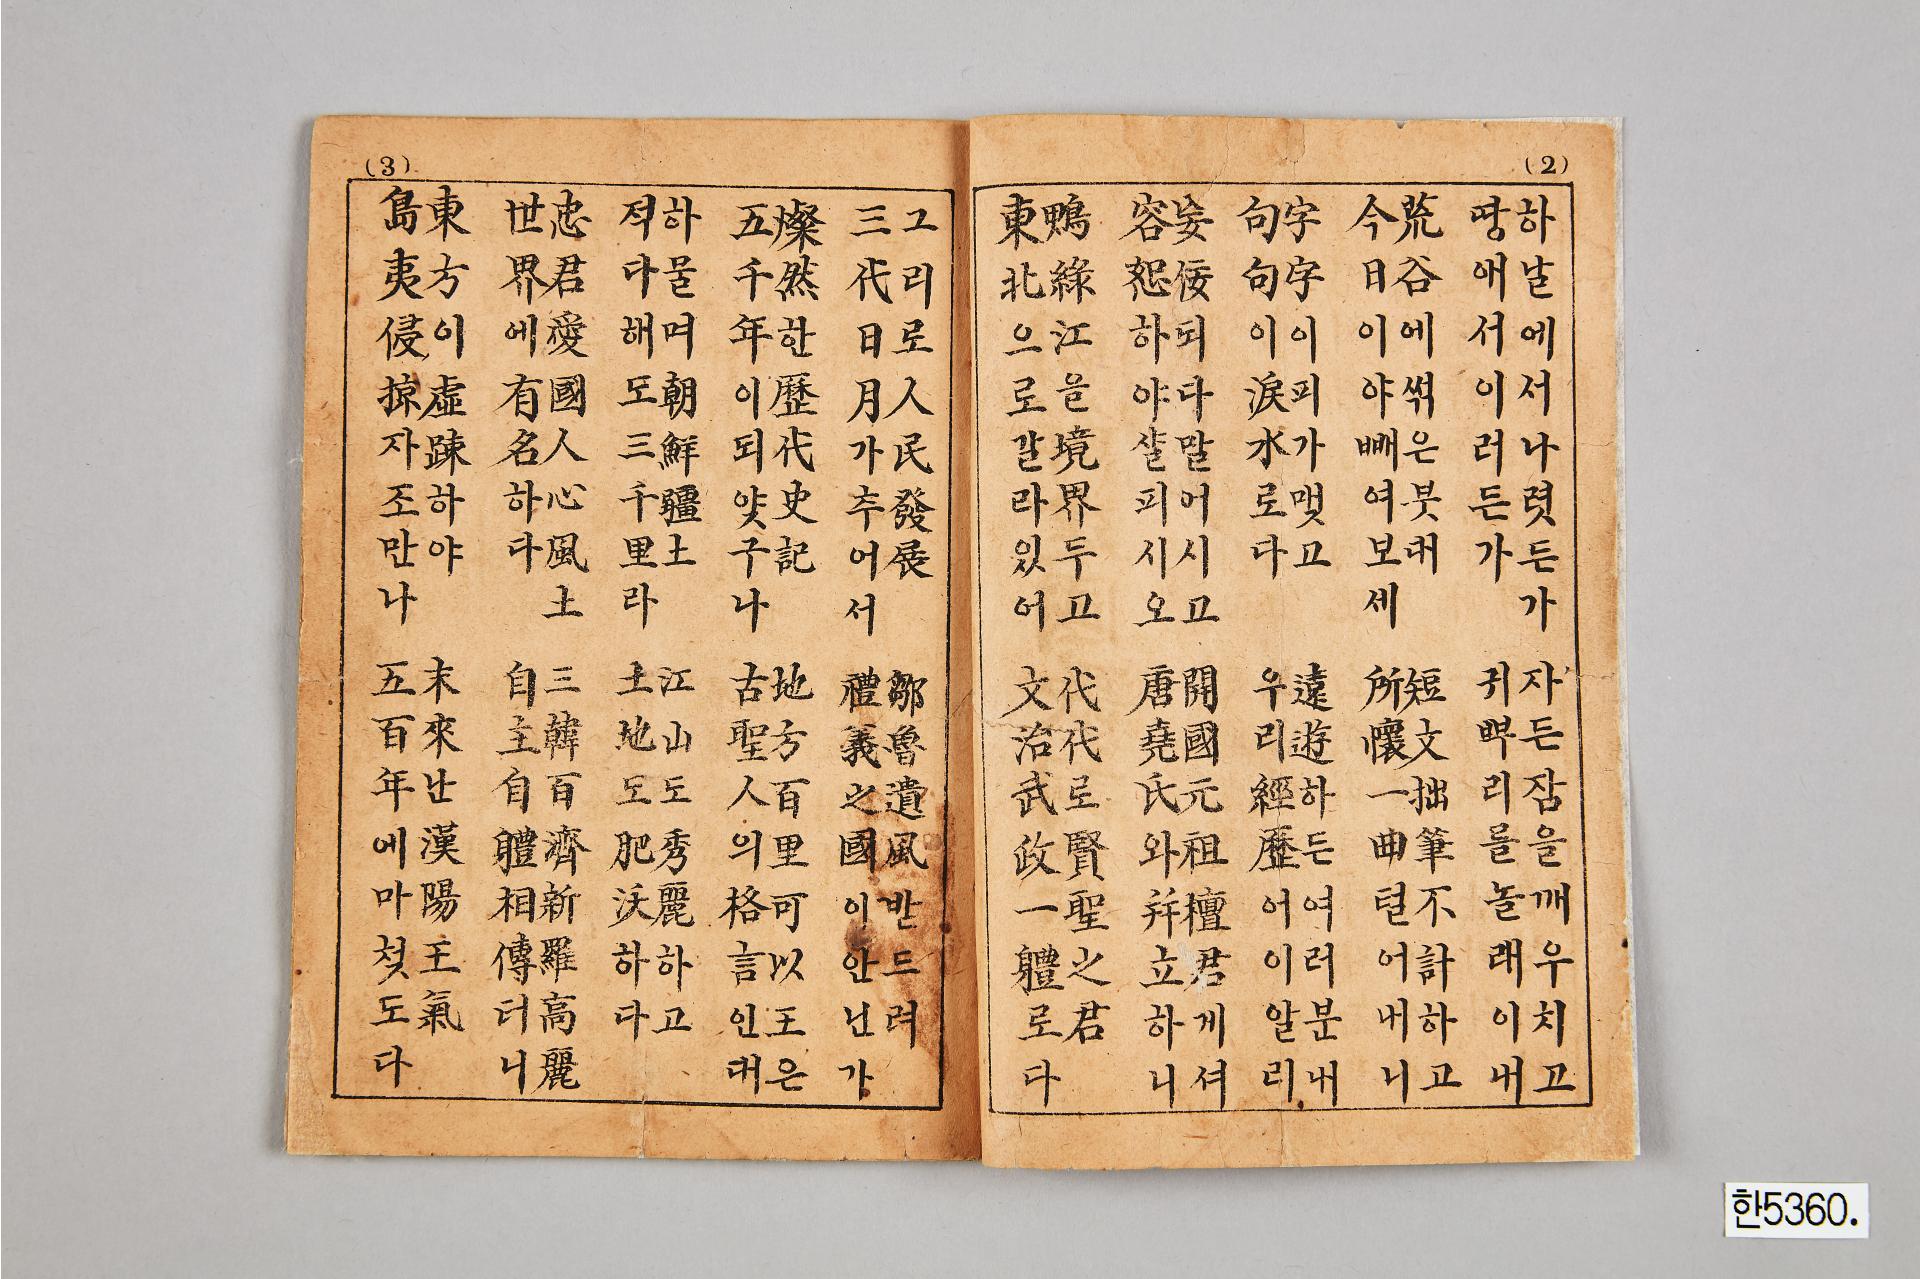 (2)
하날에서나렷든가
땅애서이러든가
자든잠을깨우치고
귀뿌리를놀래이내
荒谷에썩은붓대
今日이야빼여보세
短文拙筆不計하고
所懷一曲텯어내니
字字이피가맺고
句句이淚水로다
遠遊하든여러분내
우리經歷어이알리
妄佞되다말어시고
容恕하야샬피시오
開國元祖檀君게셔
唐堯氏와幷立하니
鴨綠江을境界두고
東北으로갈라있어
代代로賢聖之君
文治武政一軆로다
(3)
그리로人民發展
三代日月가추어서
鄒魯遺風반드려
禮義之國이안닌가
燦然한歷代史記
五千年이되얏구나
地方百里可以王은
古聖人의格言인대
하물며朝鮮疆土
적다해도三千里라
江山도秀麗하고
土地도肥沃하다
忠君愛國人心風土
世界에有名하다
三韓百濟新羅高麗
自主自軆相傳터니
東方이虛踈하야
島夷侵掠자조만나
末來난漢陽王氣
五百年에마쳣도다
한5360.